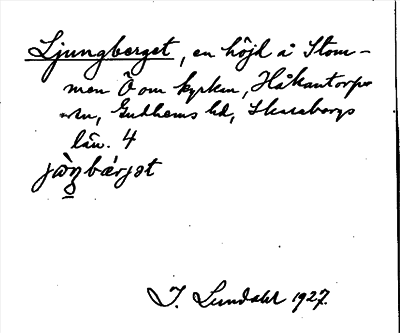 Ljungberget, en höjd å Stom-
men Ö om kyrkan, Håkantorps
sn, Gudhems hd, Skaraborgs
län. 4
jὼŋbǽrjət
I. Lundahl 1927.